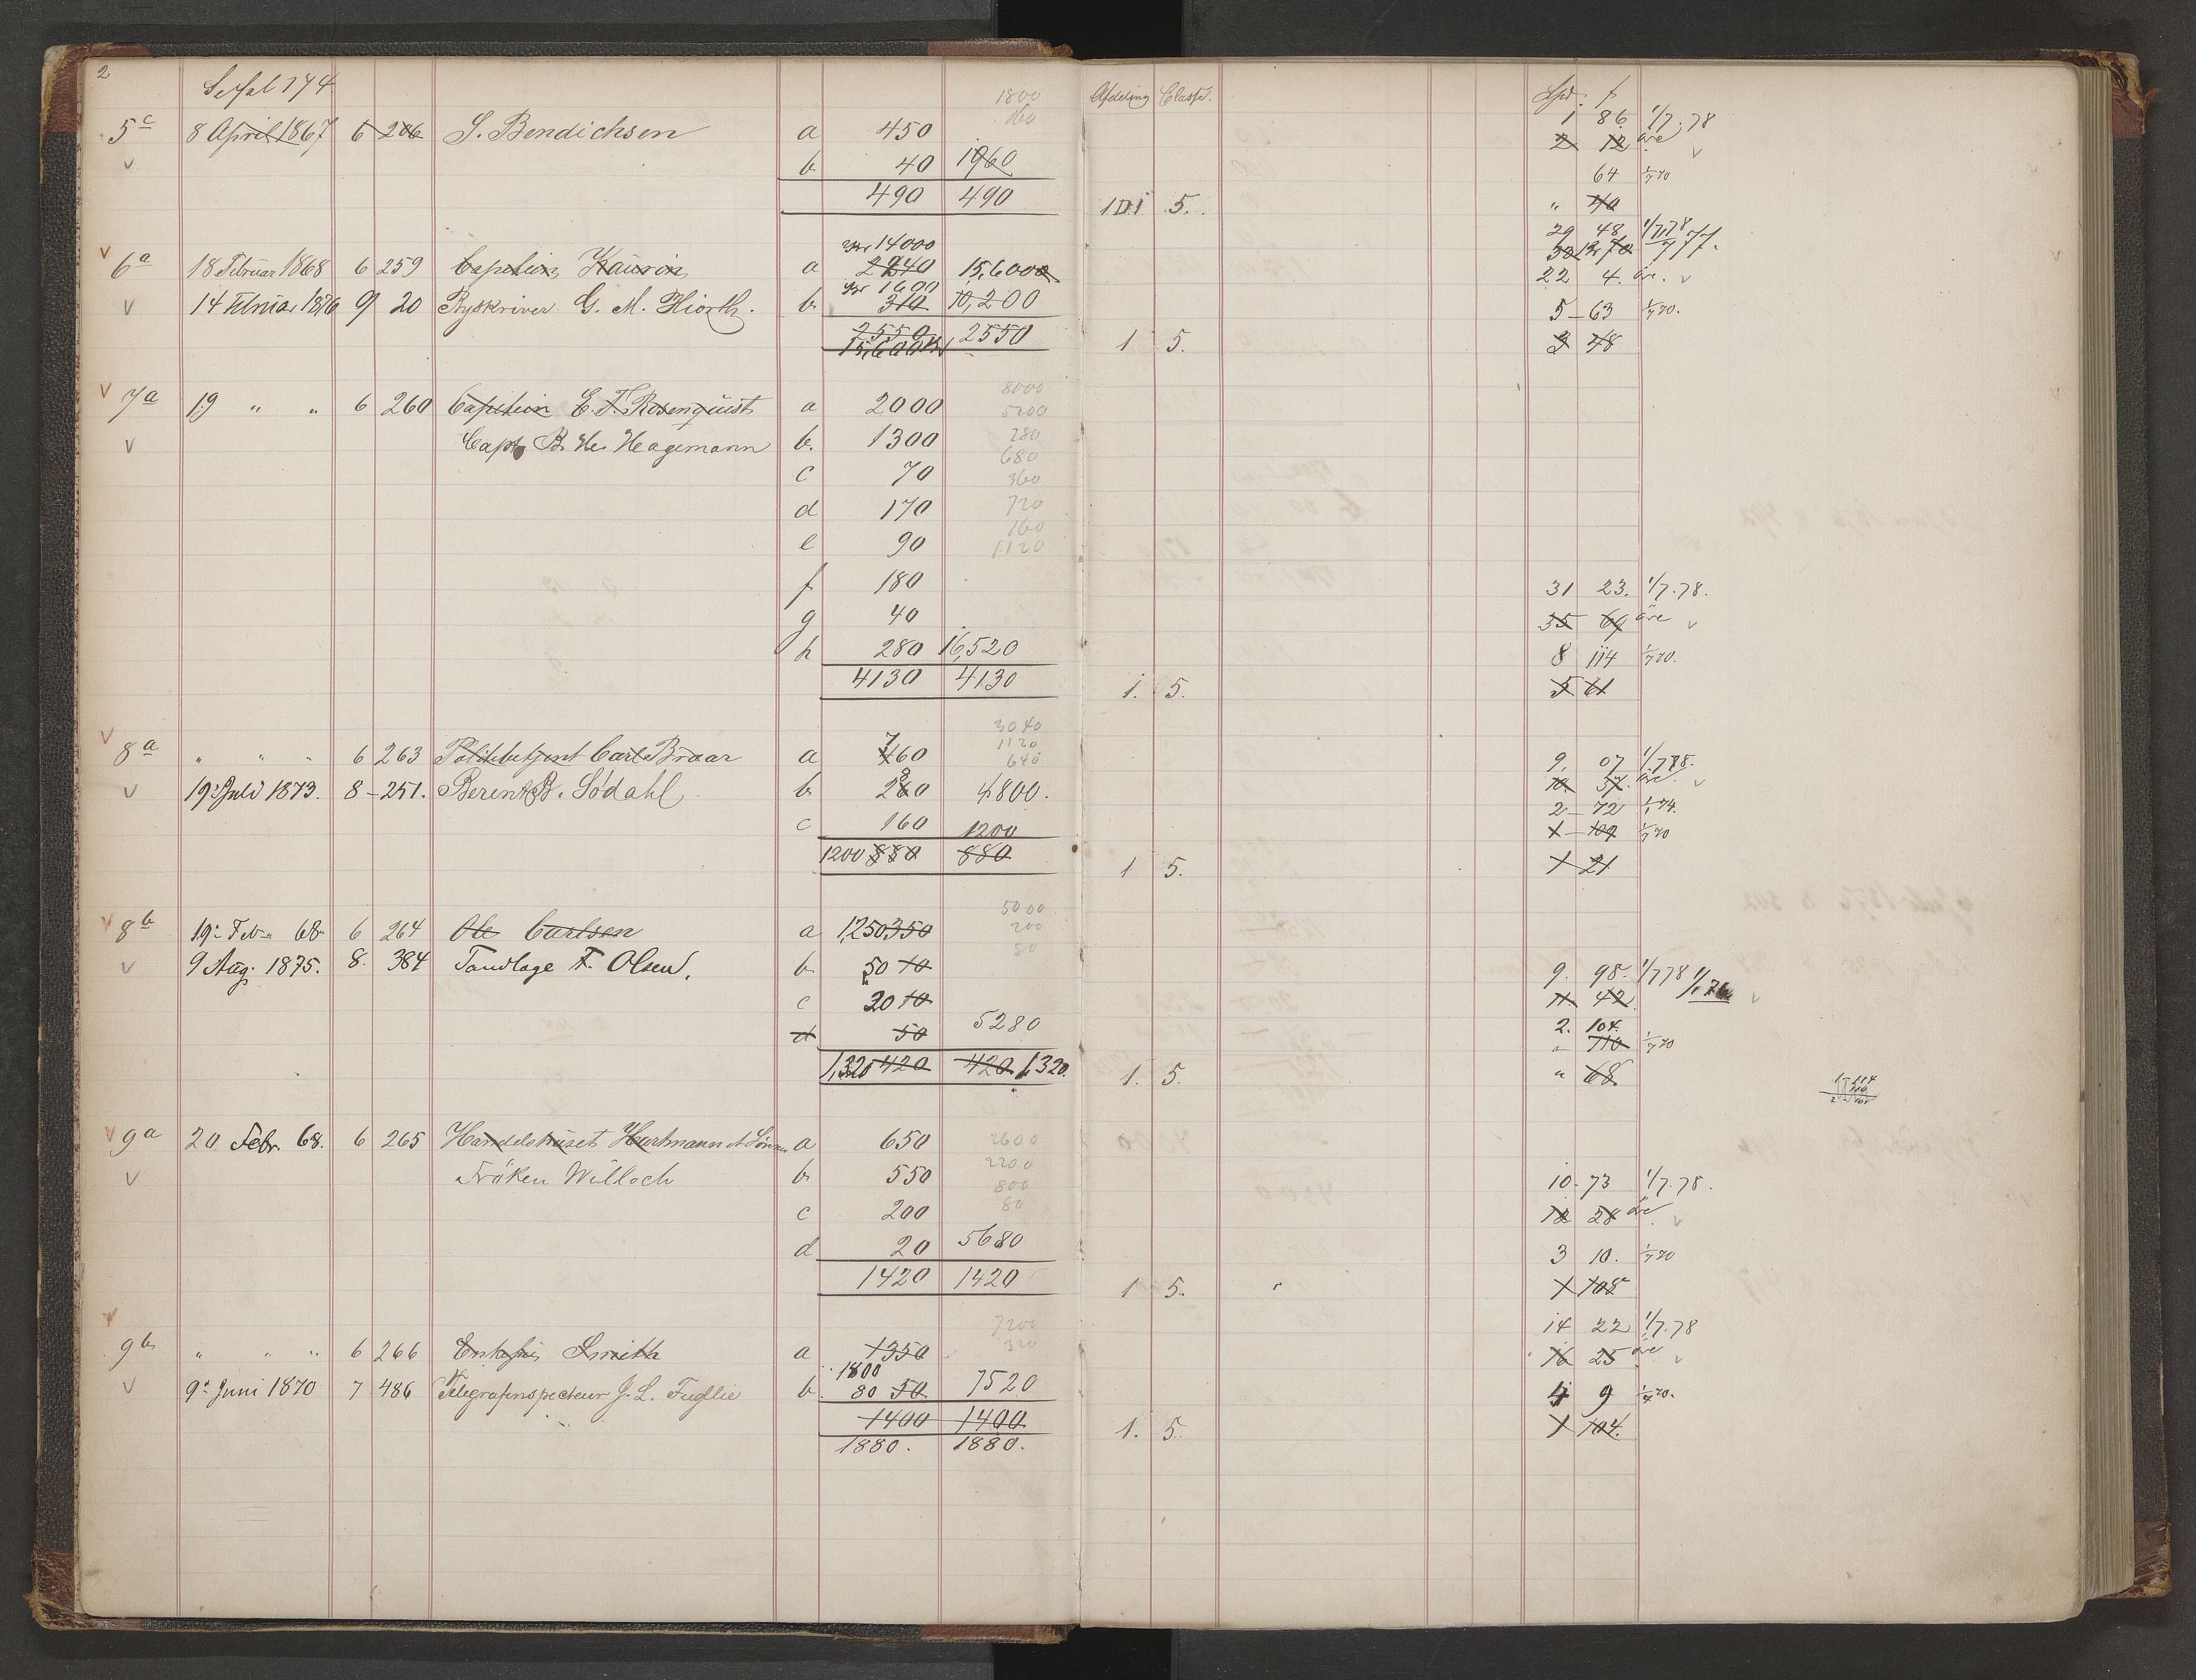 2
Se fol 174
Afdeling Classe. Spd. ß
1800
160
5c 8 April 1867 6 206 S. Bendichsen a 450 1 86 1/7.78
2 12 øre
v b 40 1960 v
64 1/7 70
490 490 1 5. " 40
v 14000 29 48 1/7.78
6a 18 Februar 1868 6 259 Capitein Kaurin a 2240 15,6000
1600 22 4. øre. v
v 14 Februar 1876 9 20 Byskriver G. M. Hiorth. b 310 10,200 5-63 1/7 70.
2550 2550 1 5. 3 48
15,600
v 8000
7a 19 " " 6 260 Capitein E. F. Rosenquist a 2000 5200
v Capt B. He. Hagemann b. 1300 280
680
c 70 360
d 170 720
160
e 90 1120
f 180 31 23. 1/7.78.
g 40 35 69 øre v
h 280 16,520 8 114 1/7 70.
4130 4130 1. 5. 5 61
v 3040
8a " " " 6 263 Politibetjent Carl Braar a 760 1120 9. 07 1/7.78.
640
v 19 Juli 1873. 8-251. Berent B. Sødahl b 280 4800. 10. 37. øre. v
2-72 1/1 74.
c 160 1200 1-109 1/7 70
1200 880 880 1 5. 1 21
v 5000
8b 19 Feb " 68 6 264 Ole Carlsen a 1,250 350 200
80
v 9 Aug. 1875. 8. 384 Tandlæge F. Olsen. b 50 10 9. 98. 1/7 78 1/1 76
c 20 10 11 42 v
d 50 5280 2. 104.
" 110 1/7 70
1,320 420 420 1,320. 1. 5. " 68
v 9a 20 Febr. 68. 6 265 Handelshuset Hartmann & Sønner a 650 2600
v Fröken Willoch b 550 2200 10-73 1/7.78.
800
c 200 80 12 28 øre v
d 20 5680 3 10. 1/7 70
1420 1420 1 5. 1 108
v 7200 14 22 1/7.78
320
9b " " " 6 266 Smith a 1350 16 25 øre v
1800
v 9 Juni 1870 7 486 Telegrafinspecteur J. L. Fuglie b. 80 50 7520 4 9 1/7 70.
1400 1400 1. 5. 1 104.
1880. 1880.